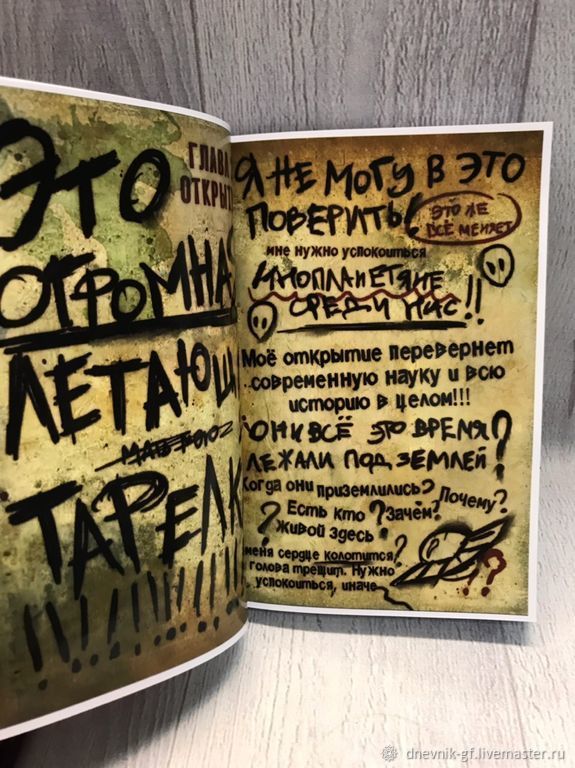 ЭТО
ГЛАВА
ОТКРЫТ
ОГРОМНАЯ
ЛЕТАЮЩ
ТАРЕЛК
!!!!!!!!!!
Я НЕ МОГУ В ЭТО
ПОВЕРИТЬ!
ЭТО ЖЕ
ВСЁ МЕНЯЕТ
мне нужно успокоиться
ИНОПЛАНЕТЯНЕ
СРЕДИ НАС!!
Моё открытие перевернет
современную науку и всю
историю в целом!!!
ОНИ ВСЁ ЭТО ВРЕМЯ
ЛЕЖАЛИ ПОД ЗЕМЛЕЙ?
Когда они приземлились?
Почему?
Есть кто ? Зачем?
? Живой здесь
меня сердце колотится,
голова трещит. Нужно
успокоиться, иначе
???
dnevnik-gf.livemaster.ru